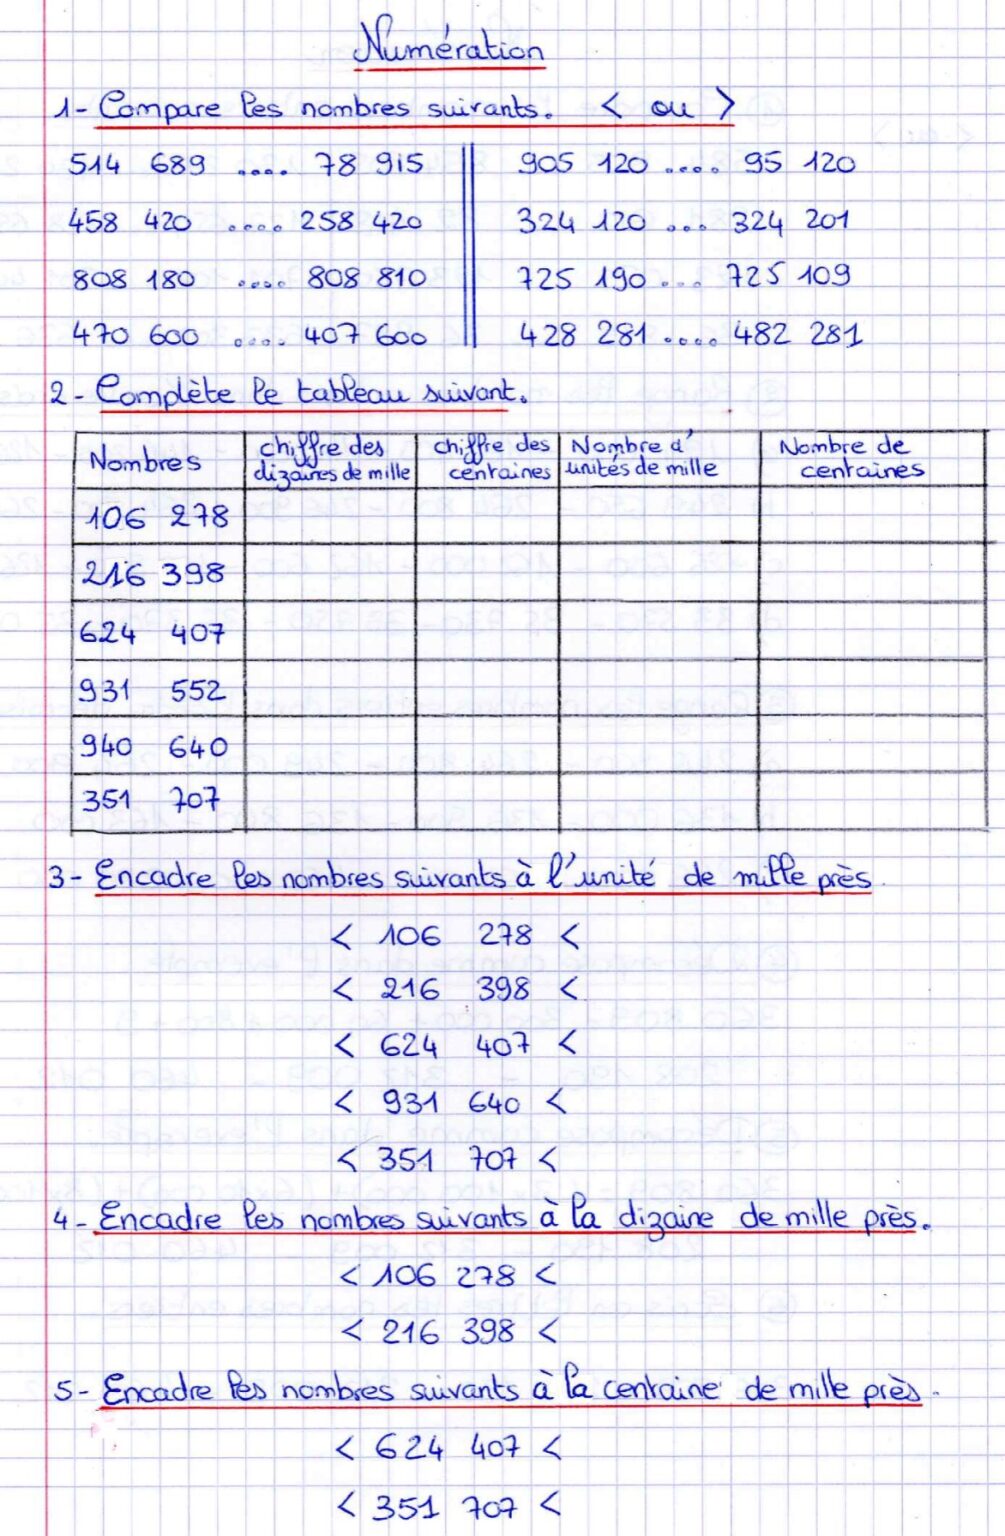 Numération
1- Compare les nombres suivants. < ou >
514 689 .... 78 915 905 120 .... 95 120
458 420 .... 258 420 324 120 ... 324 201
808 180 .... 808 810 725 190 ... 725 109
470 600 .... 407 600 428 281 .... 482 281
2- Complète le tableau suivant.
Nombres chiffre des dizaines de mille chiffre des centaines Nombre d'unités de mille Nombre de centaines
106 278
216 398
624 407
931 552
940 640
351 707
3- Encadre les nombres suivants à l'unité de mille près.
< 106 278 <
< 216 398 <
< 624 407 <
< 931 640 <
< 351 707 <
4- Encadre les nombres suivants à la dizaine de mille près.
< 106 278 <
< 216 398 <
5- Encadre les nombres suivants à la centaine de mille près.
< 624 407 <
< 351 707 <